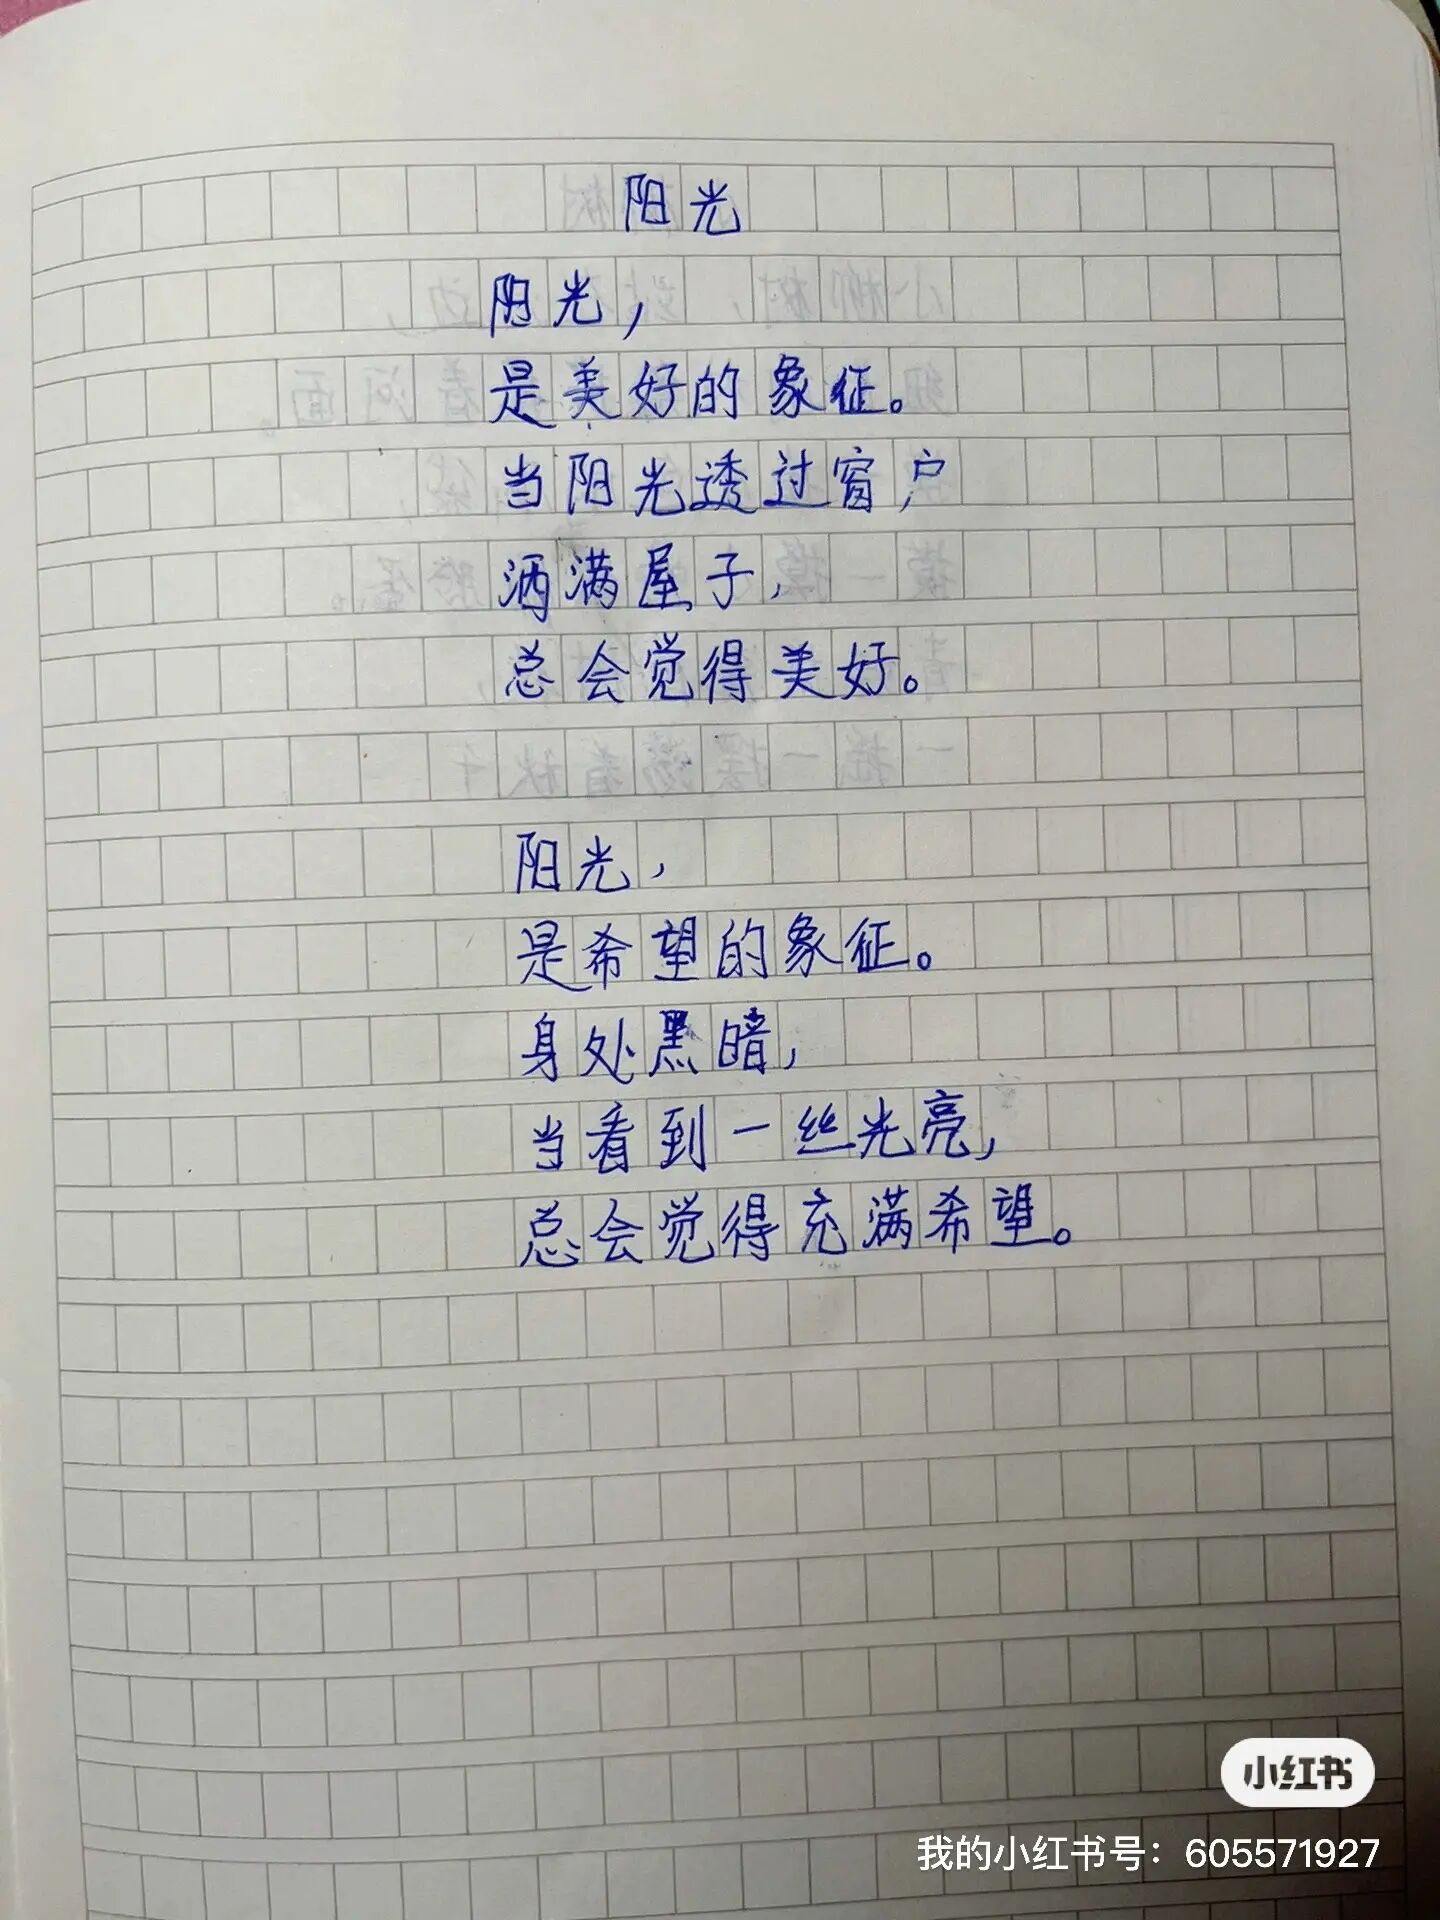 阳光
阳光,
是美好的象征。
当阳光透过窗户
洒满屋子,
总会觉得美好。
阳光,
是希望的象征。
身处黑暗,
当看到一丝光亮,
总会觉得充满希望。
小红书
我的小红书号：605571927